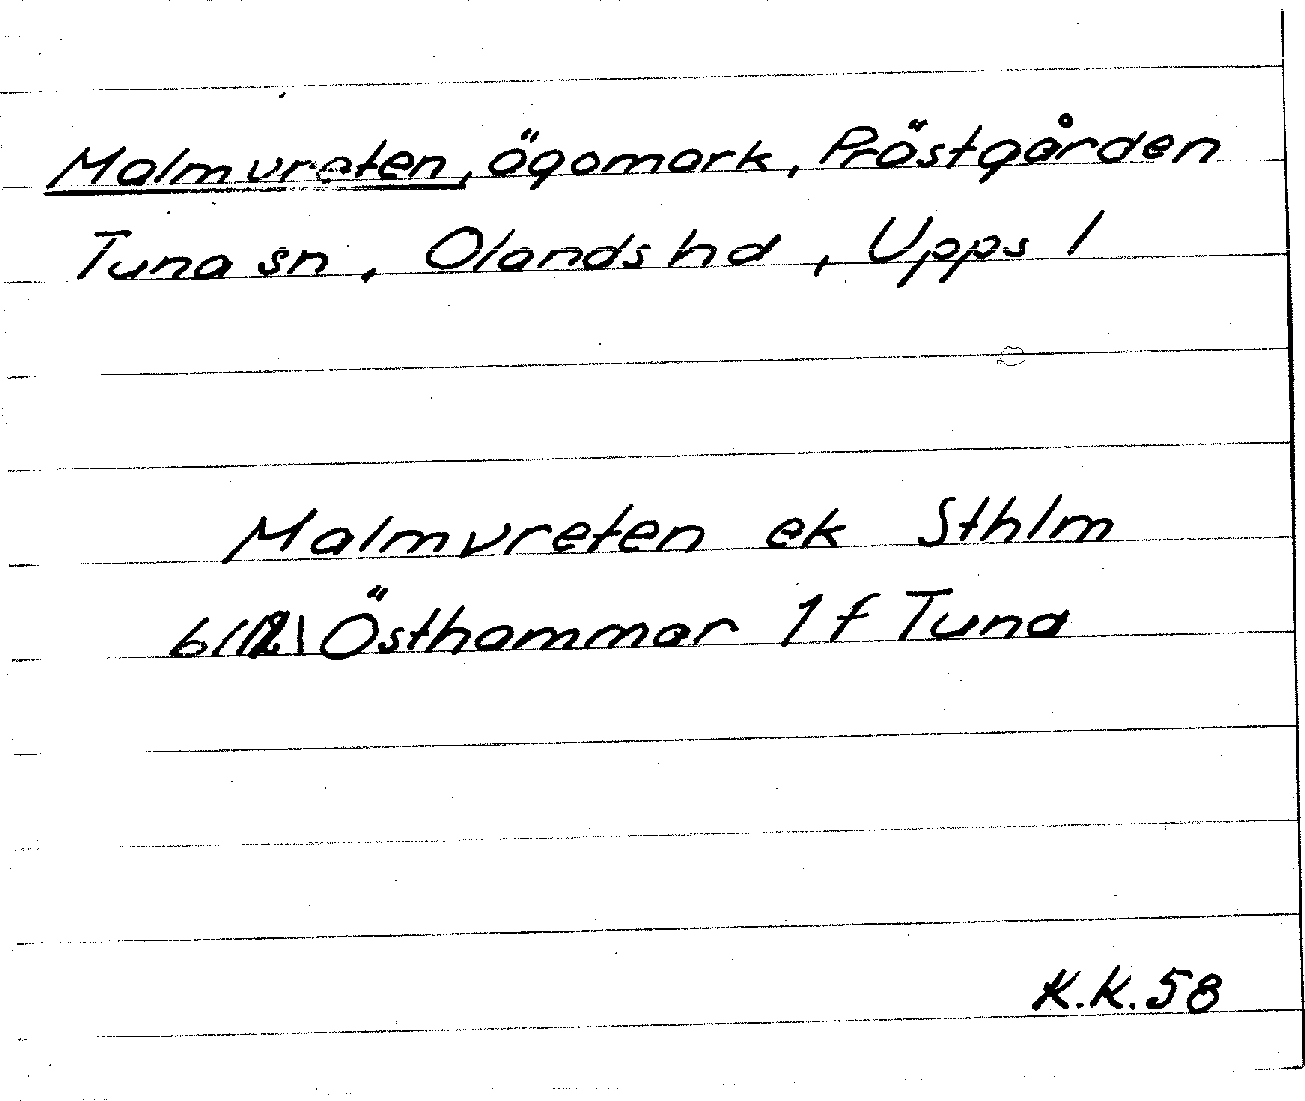 Malmvreten, ägomark, Prästgården
Tuna sn, Olands hd, Upps l
Malmvreten ek Sthlm
Östhammar 1 f Tuna
K.K. 58